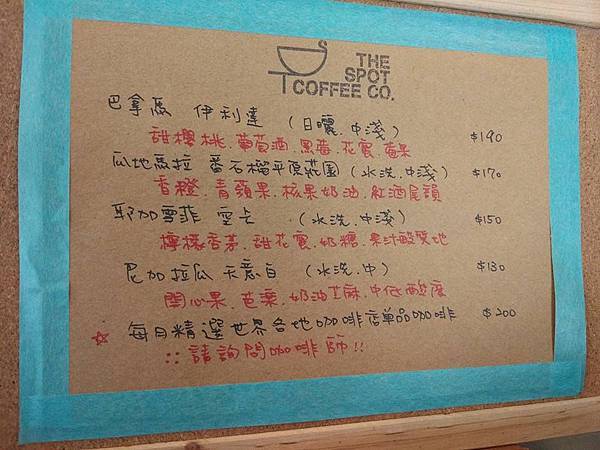 THE
SPOT
COFFEE CO.
巴拿馬 伊利達 (日曬.中淺) $190
甜櫻桃.葡萄酒.黑莓.花蜜.莓果
瓜地馬拉 番石榴平原莊園(水洗.中淺) $170
香橙.青蘋果.核果奶油.紅酒尾韻
耶加雪菲 (水洗.中淺) $150
檸檬香茅.甜花蜜.奶糖.果汁酸質地
尼加拉瓜 天意白 (水洗.中) $130
開心果.芭樂.奶油芝麻.中低酸度
☆ 每日精選世界各地咖啡店單品咖啡 $200
::請詢問咖啡師!!